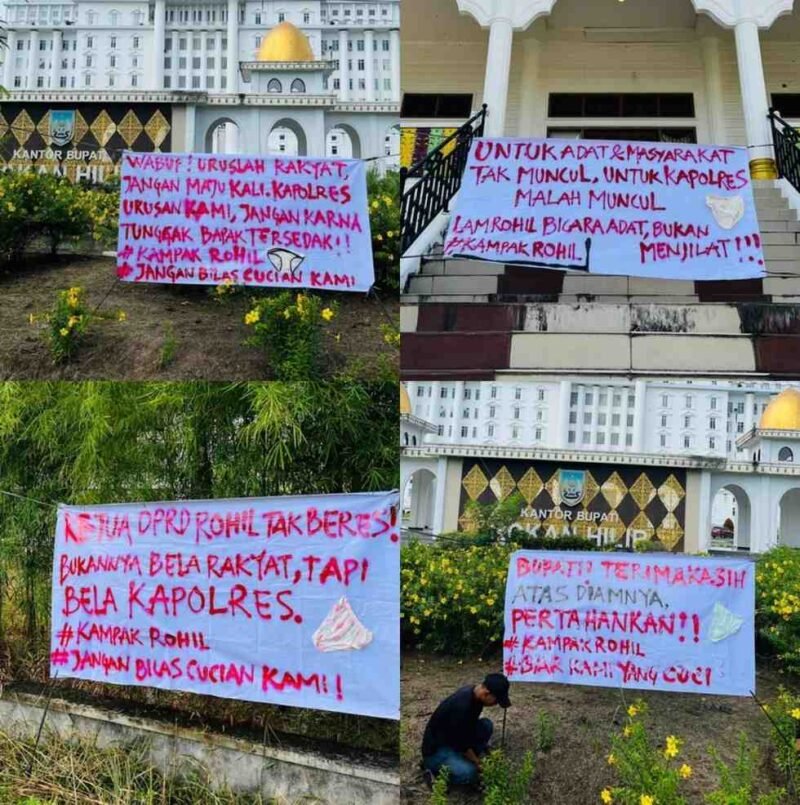 KANTOR BUPATI
WABUP! URUSLAH RAKYAT,
JANGAN MAJU KALI. KAPOLRES
URUSAN KAMI, JANGAN KARNA
TUNGGAK BAPAK TERSEDAK!!
#KAMPAK ROHIL
#JANGAN BILAS CUCIAN KAMI
UNTUK ADAT & MASYARAKAT
TAK MUNCUL, UNTUK KAPOLRES
MALAH MUNCUL
LAM ROHIL BICARA ADAT, BUKAN
#KAMPAK ROHIL! MENJILAT!!!
KETUA DPRD ROHIL TAK BERES!
BUKANNYA BELA RAKYAT, TAPI
BELA KAPOLRES.
#KAMPAK ROHIL
#JANGAN BILAS CUCIAN KAMI!
KANTOR BUPATI
OKAN HILIR
BUPATI TERIMAKASIH
ATAS DIAMNYA,
PERTAHANKAN!!
#KAMPAK ROHIL
#BIAR KAMI YANG CUCI